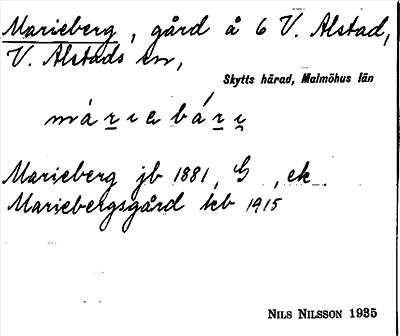 Marieberg, gård å 6 V. Alstad,
V. Alstads sn,
Skytts härad, Malmöhus län
Marieberg jb 1881, G , ek
Mariebergsgård kb 1915
NILS NILSSON 1935